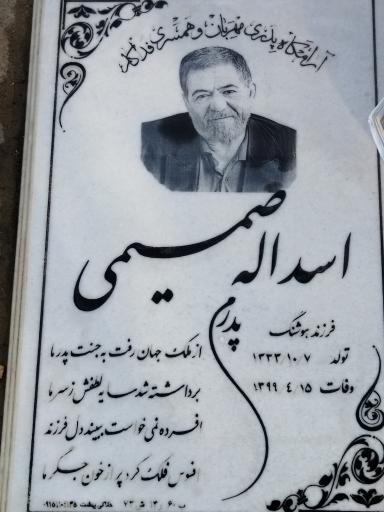 آرامگاه پدری مهربان و همسری فداکار
اسداله صمیمی
فرزند هوشنگ
تولد ۱۳۳۳/۱۰/۷
وفات ۱۳۹۹/۴/۱۵
پدرم
از ملک جهان رفت به جنت پدر ما
برداشته شد سایه لطفش ز سر ما
افسرده نمی خواست ببیند دل فرزند
افسوس فلک کرد پر از خون جگر ما
ب ۶۰ ر ۳ ش ۷۳
حکاکی بهشت